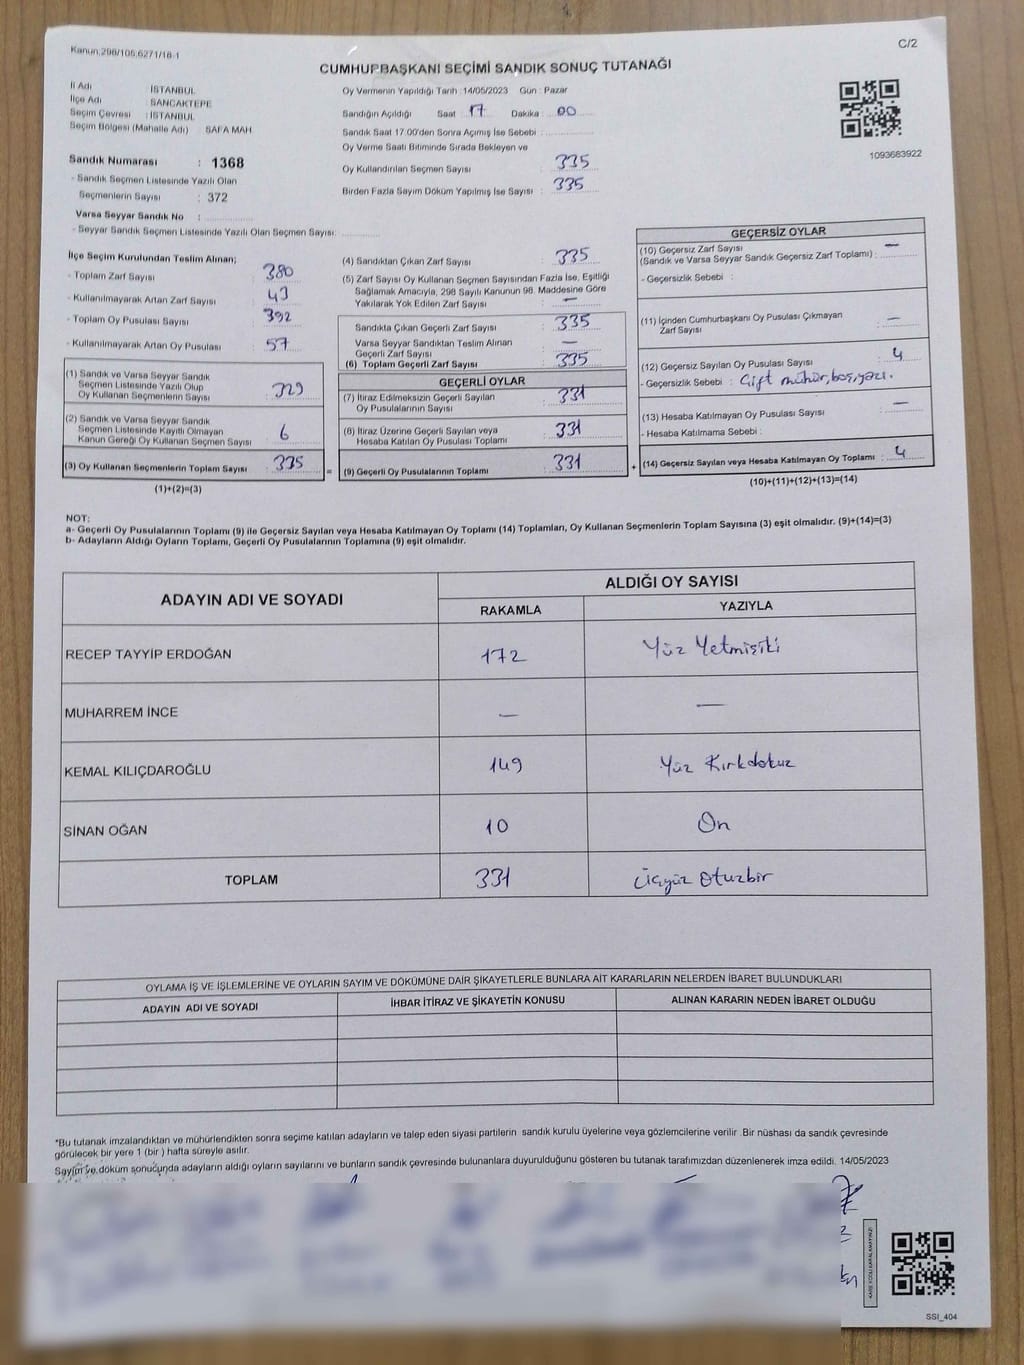 Kanun,298/105,6271/18-1
C/2
CUMHURBAŞKANI SEÇİMİ SANDIK SONUÇ TUTANAĞI
İl Adı : İSTANBUL
İlçe Adı : SANCAKTEPE
Seçim Çevresi : İSTANBUL
Seçim Bölgesi (Mahalle Adı) SAFA MAH.
Sandık Numarası : 1368
- Sandık Seçmen Listesinde Yazılı Olan
Seçmenlerin Sayısı : 372
Varsa Seyyar Sandık No :
- Seyyar Sandık Seçmen Listesinde Yazılı Olan Seçmen Sayısı:
Oy Vermenin Yapıldığı Tarih :14/05/2023 Gün : Pazar
Sandığın Açıldığı Saat : 17 Dakika : 00
Sandık Saat 17.00'den Sonra Açımış İse Sebebi :
Oy Verme Saati Bitiminde Sırada Bekleyen ve
Oy Kullandırılan Seçmen Sayısı : 335
Birden Fazla Sayım Döküm Yapılmış İse Sayısı : 335
1093683922
İlçe Seçim Kurulundan Teslim Alınan;
- Toplam Zarf Sayısı : 380
- Kullanılmayarak Artan Zarf Sayısı : 43
- Toplam Oy Pusulası Sayısı : 392
- Kullanılmayarak Artan Oy Pusulası : 57
(1) Sandık ve Varsa Seyyar Sandık
Seçmen Listesinde Yazılı Olup
Oy Kullanan Seçmenlerin Sayısı : 329
(2) Sandık ve Varsa Seyyar Sandık
Seçmen Listesinde Kayıtlı Olmayan
Kanun Gereği Oy Kullanan Seçmen Sayısı : 6
(3) Oy Kullanan Seçmenlerin Toplam Sayısı : 335
(1)+(2)=(3)
=
(4) Sandıktan Çıkan Zarf Sayısı : 335
(5) Zarf Sayısı Oy Kullanan Seçmen Sayısından Fazla İse, Eşitliği
Sağlamak Amacıyla, 298 Sayılı Kanunun 98. Maddesine Göre
Yakılarak Yok Edilen Zarf Sayısı : —
Sandıkta Çıkan Geçerli Zarf Sayısı : 335
Varsa Seyyar Sandıktan Teslim Alınan
Geçerli Zarf Sayısı : —
(6) Toplam Geçerli Zarf Sayısı : 335
GEÇERLİ OYLAR
(7) İtiraz Edilmeksizin Geçerli Sayılan
Oy Pusulalarının Sayısı : 331
(8) İtiraz Üzerine Geçerli Sayılan veya
Hesaba Katılan Oy Pusulası Toplamı : 331
(9) Geçerli Oy Pusulalarının Toplamı : 331
+
GEÇERSİZ OYLAR
(10) Geçersiz Zarf Sayısı
(Sandık ve Varsa Seyyar Sandık Geçersiz Zarf Toplamı) : —
- Geçersizlik Sebebi :
(11) İçinden Cumhurbaşkanı Oy Pusulası Çıkmayan
Zarf Sayısı : —
(12) Geçersiz Sayılan Oy Pusulası Sayısı : 4
- Geçersizlik Sebebi : Çift mühür, boş, yazı.
(13) Hesaba Katılmayan Oy Pusulası Sayısı : —
- Hesaba Katılmama Sebebi :
(14) Geçersiz Sayılan veya Hesaba Katılmayan Oy Toplamı : 4
(10)+(11)+(12)+(13)=(14)
NOT:
a- Geçerli Oy Pusulalarının Toplamı (9) ile Geçersiz Sayılan veya Hesaba Katılmayan Oy Toplamı (14) Toplamları, Oy Kullanan Seçmenlerin Toplam Sayısına (3) eşit olmalıdır. (9)+(14)=(3)
b- Adayların Aldığı Oyların Toplamı, Geçerli Oy Pusulalarının Toplamına (9) eşit olmalıdır.
ADAYIN ADI VE SOYADI
ALDIĞI OY SAYISI
RAKAMLA YAZIYLA
RECEP TAYYİP ERDOĞAN 172 Yüz Yetmişiki
MUHARREM İNCE — —
KEMAL KILIÇDAROĞLU 149 Yüz Kırkdokuz
SİNAN OĞAN 10 On
TOPLAM 331 üçyüz otuzbir
OYLAMA İŞ VE İŞLEMLERİNE VE OYLARIN SAYIM VE DÖKÜMÜNE DAİR ŞİKAYETLERLE BUNLARA AİT KARARLARIN NELERDEN İBARET BULUNDUKLARI
ADAYIN ADI VE SOYADI İHBAR İTİRAZ VE ŞİKAYETİN KONUSU ALINAN KARARIN NEDEN İBARET OLDUĞU
*Bu tutanak imzalandıktan ve mühürlendikten sonra seçime katılan adayların ve talep eden siyasi partilerin sandık kurulu üyelerine veya gözlemcilerine verilir .Bir nüshası da sandık çevresinde
görülecek bir yere 1 (bir ) hafta süreyle asılır.
Sayım ve döküm sonucunda adayların aldığı oyların sayılarını ve bunların sandık çevresinde bulunanlara duyurulduğunu gösteren bu tutanak tarafımızdan düzenlenerek imza edildi. 14/05/2023
SSI_404